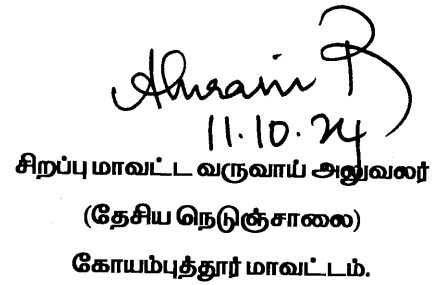 11.10.24
சிறப்பு மாவட்ட வருவாய் அலுவலர்
(தேசிய நெடுஞ்சாலை)
கோயம்புத்தூர் மாவட்டம்.